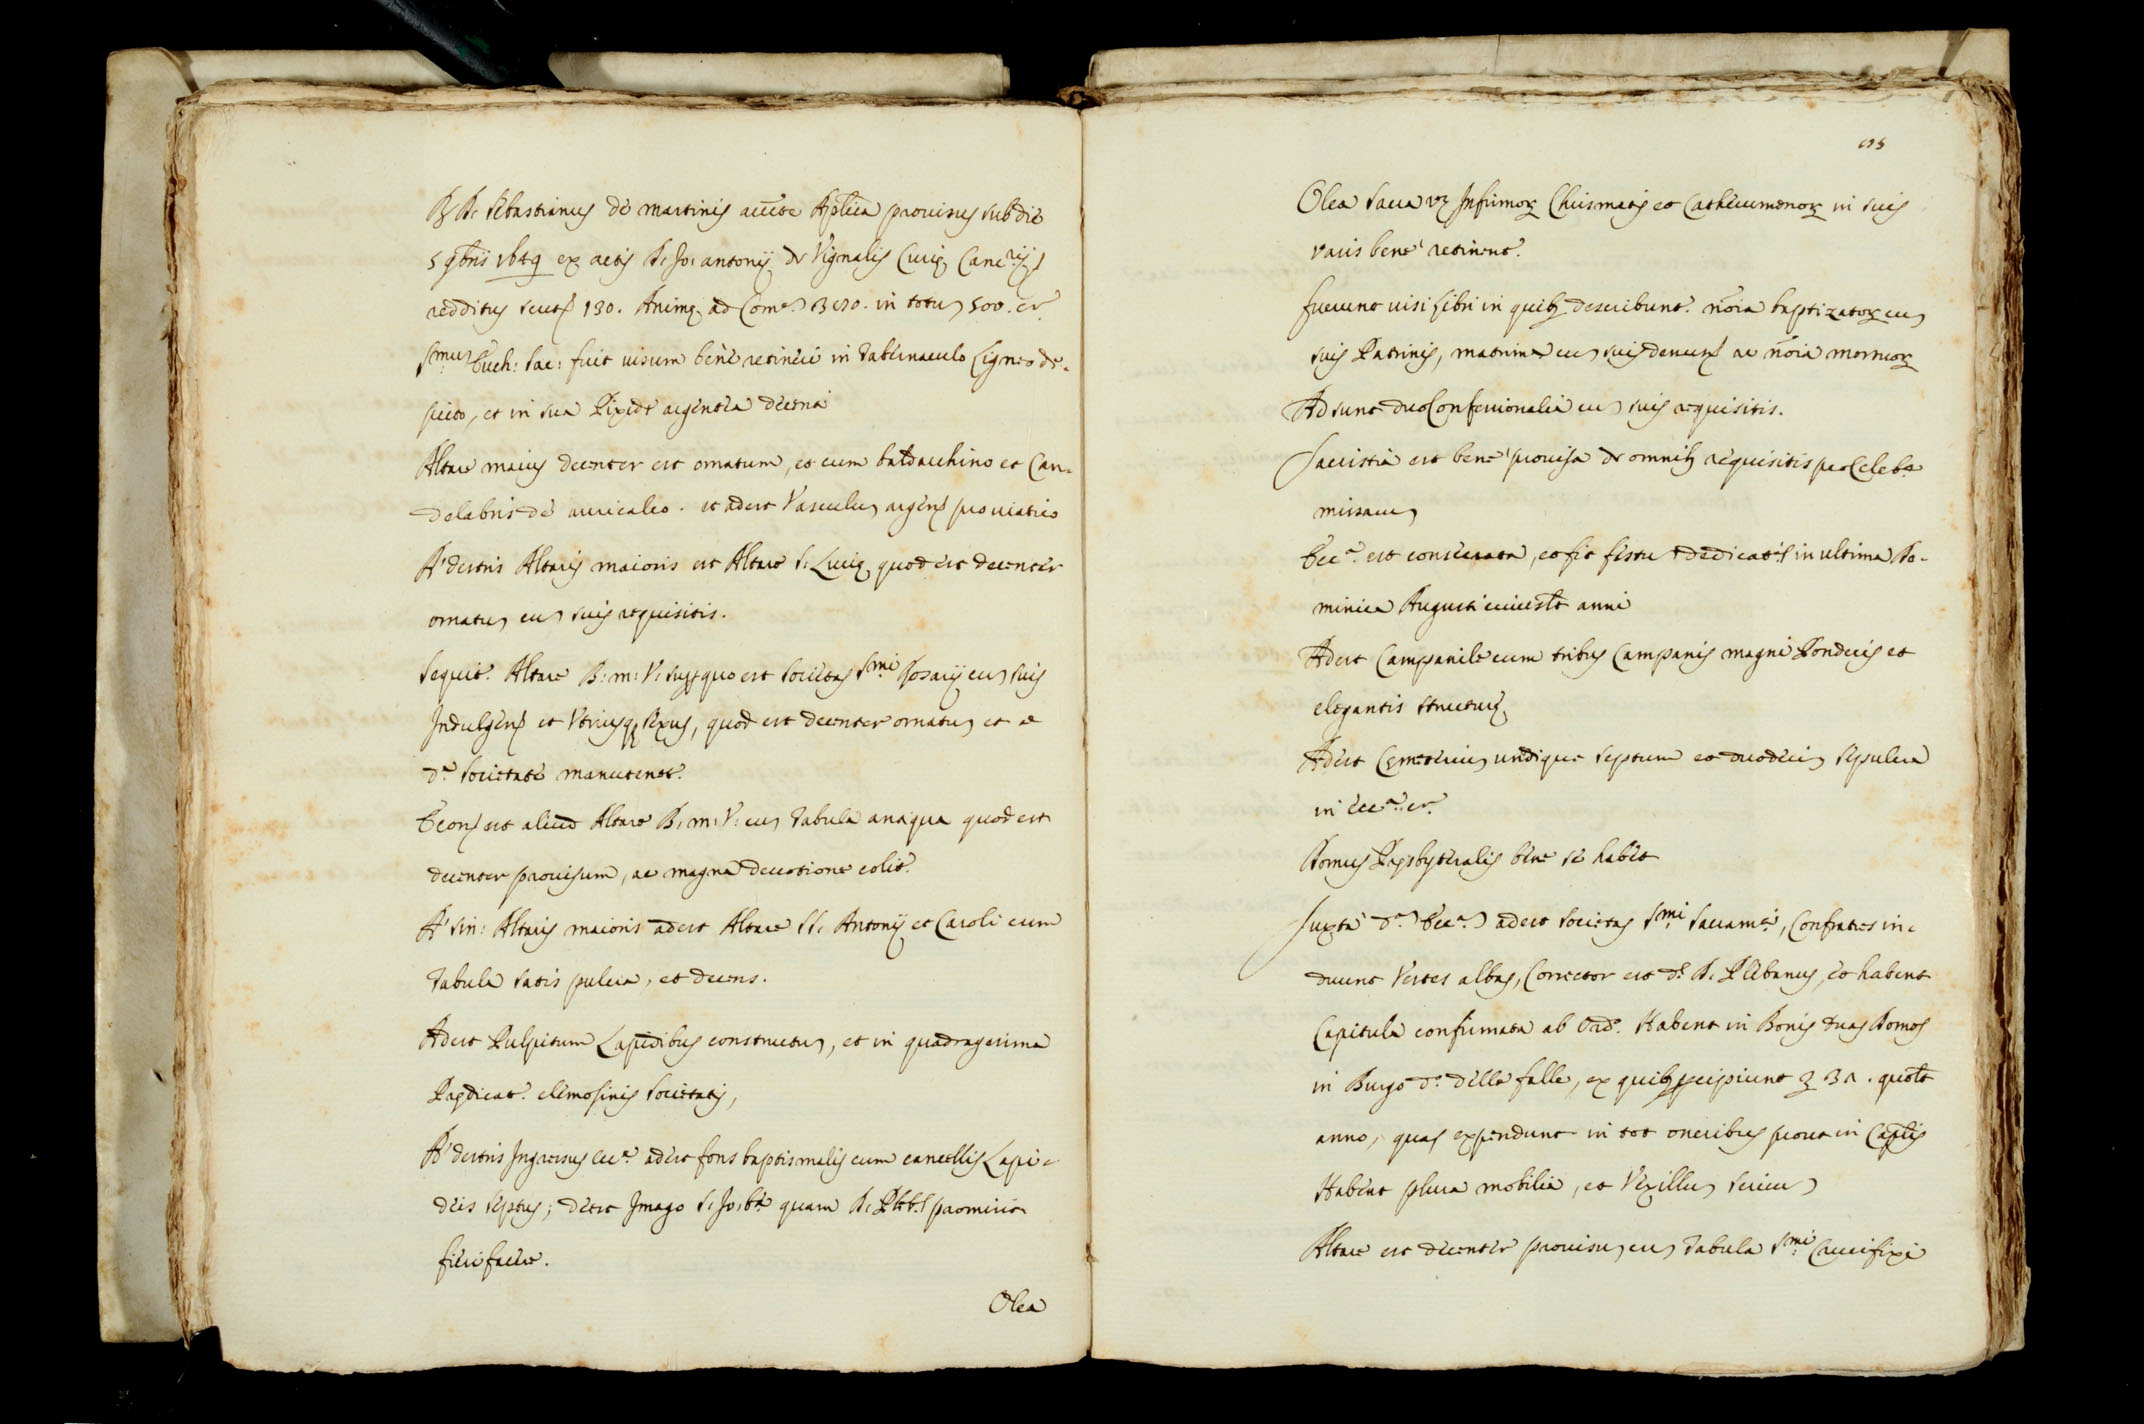 D. Sebastianus de Martinis aucte Aplica prouisus sub die
5 9bris 1649 ex actis D. Jo: Antonij de Vignalis Curiæ Canc.rij
redditus scut. 130. Animæ ad Com.e in totu 500. et.
S.mum Euch: Sac: fuit uisum bene retineri in Tabernaculo Ligneo de-
picto, et in sua Pixide argentea decenti
Altare maius decenter est ornatum, et cum baldacchino et Can-
delabris de auricalco. et adest Vasculu argen. pro uiatico
A' dextris Altaris maioris est Altare S. Luciæ quod est decenter
ornatu cu suis requisitis.
Sequit. Altare B: m: V. sup quo est Societas S.mi Rosarij cu suis
Indulgen. et Vtriusq sexus, quod est decenter ornatu et a
d.a Societate manutenet.
E con. est aliud Altare B. m. V: cu Tabula antiqua quod est
decenter prouisum, ac magna deuotione colit.
A' sin: Altaris maioris adest Altare SS. Antonij et Caroli cum
Tabula satis pulcra, et decens.
Adest Pulpitum Lapidibus constructu, et in quadragesima
Prædicat. elemosinis Societatis,
A' dextris Ingressus Ecc.æ adest fons baptismalis cum cancellis Lapi-
deis septus; deest Imago S. Jo: bt.æ quam D. Pleb. promisit
fieri facere.
Olea
Olea Sacra vz Infirmor Chrismatis et Cathecumenor in suis
vasis bene retinent.
fuerunt uisi libri in quib describunt. noia baptizator cu
suis Patrinis, matrim cu suis denun. ac noia mortuor
Adsunt duo Confessionalia cu suis requisitis.
Sacristia est bene prouisa de omnib requisitis pro Celeb.
missaru
Ecc.a est consecrata, et fit festu dedicat. in ultima Do-
minica Augusti cuiuslt anni
Adest Campanile cum tribus Campanis magni Ponderis et
elegantis structuræ
Adest Cemeteriu undique septum et duodeci sepulcra
in ecc.a et.
Domus Præsbyteralis bene se habet
Juxta d.a Ecc.a adest Societas S.mi Sacram.ti, Confratres in-
duunt Vestes albas, Corrector est d. D. Plebanus, et habent
Capitula confirmata ab Ord. Habent in Bonis duas Domos
in Burgo d.o delle falle, ex quib percipiunt quolt
anno, quas expendunt in tot oneribus prout in Caplis
Habent plura mobilia, et Vexillu sericu
Altare est decenter prouisu cu Tabula S.mi Crucifixi